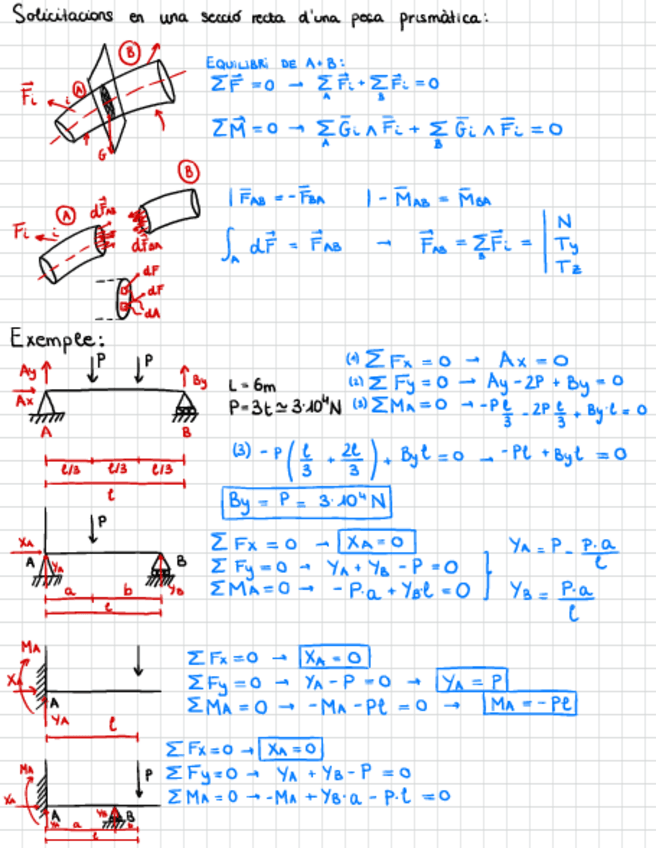 Solicitacions en una secció recta d'una peça prismàtica:
EQUILIBRI DE A+B:
ΣF⃗ = 0 → Σ_A F⃗i + Σ_B F⃗i = 0
ΣM⃗ = 0 → Σ_A Ḡi ∧ F̄i + Σ_B Ḡi ∧ F̄i = 0
F⃗i i A B G
| F̄AB = -F̄BA | -M̄AB = M̄BA
∫_A dF⃗ = F⃗AB → F⃗AB = Σ_B F⃗i = | N Ty Tz
F⃗i i A B dF⃗AB dF⃗BA
dF
dF
dA
Exemple:
Ay Ax P P By A B
l/3 l/3 l/3
l
L = 6m
P = 3t ≃ 3·10⁴N
(1) ΣFx = 0 → Ax = 0
(2) ΣFy = 0 → Ay - 2P + By = 0
(3) ΣMA = 0 → -P l/3 - 2P l/3 + By·l = 0
(3) -P (l/3 + 2l/3) + By l = 0 → -Pl + By l = 0
By = P = 3·10⁴N
XA A YA P B YB
a b
l
ΣFx = 0 → XA = 0
ΣFy = 0 → YA + YB - P = 0
ΣMA = 0 → -P·a + YB·l = 0
YA = P - P·a/l
YB = P·a/l
MA XA A YA
l
ΣFx = 0 → XA = 0
ΣFy = 0 → YA - P = 0 → YA = P
ΣMA = 0 → -MA - Pl = 0 → MA = -Pl
MA XA A YB B P
a
l
ΣFx = 0 → XA = 0
ΣFy = 0 → YA + YB - P = 0
ΣMA = 0 → -MA + YB·a - P·l = 0